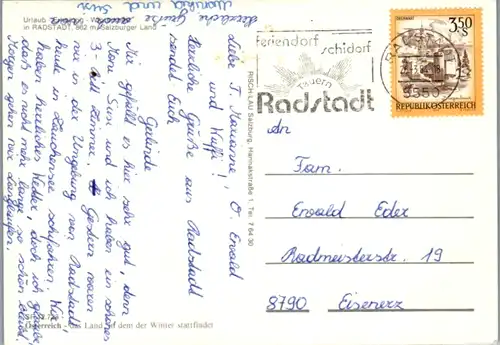 Urlaub
in RADSTADT, 862 m, Salzburger Land
Herzliche Grüße
Monika und Susi
Liebe T. Marianne, O. Ewald
und Waffi!
Herzliche Grüße aus Radstadt
sendet Euch
Gerlinde
Mir gefällt es hier sehr gut, denn
Moni, Susi und ich haben ein schönes
3-Bett Zimmer. Gestern waren
wir in der Umgebung von Radstadt,
heute in Zauchensee schifahren. Wir
haben herrliches Wetter, doch ich glaube
daß es nicht mehr lange so schön bleibt.
Morgen gehen wir Langlaufen.
Österreich - das Land in dem der Winter stattfindet
RISCH-LAU Salzburg, Hannakstraße 1, Tel. 7 64 30
feriendorf schidorf
Tauern
Radstadt
5550
3.50
S
REPUBLIK ÖSTERREICH
An
Fam.
Ewald Eder
Radmeisterstr. 19
8790 Eisenerz